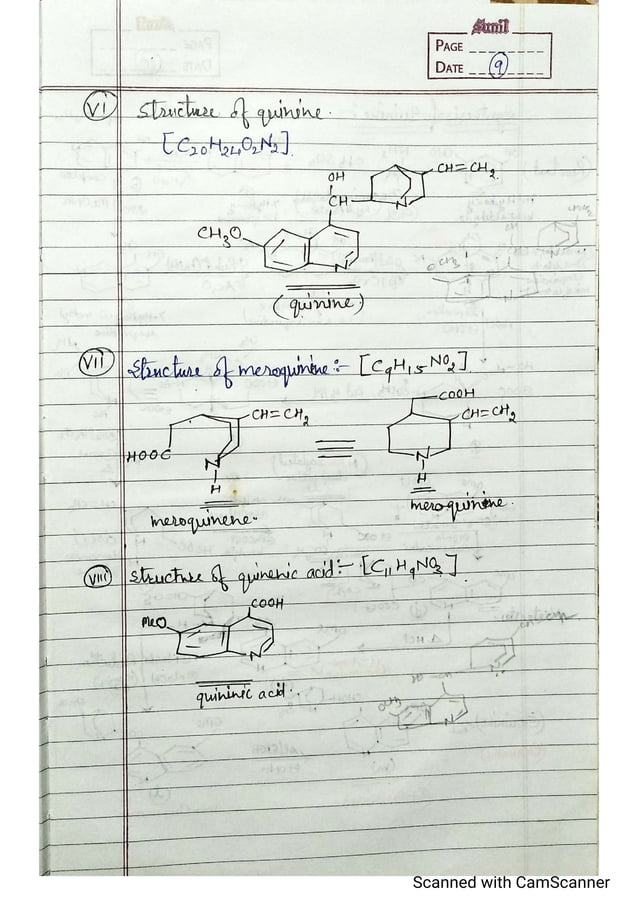 Sunil
PAGE
DATE 9
VI Structure of quinine.
[C20H24O2N2].
OH
CH
CH=CH2
N
CH3O
N
(quinine)
VII Structure of meroquinine:- [C9H15NO2]
CH=CH2
HOOC
N
H
meroquinene.
COOH
CH=CH2
N
H
meroquinine.
VIII Structure of quinenic acid:- [C11H9NO3]
COOH
MeO
N
quininic acid.
Scanned with CamScanner